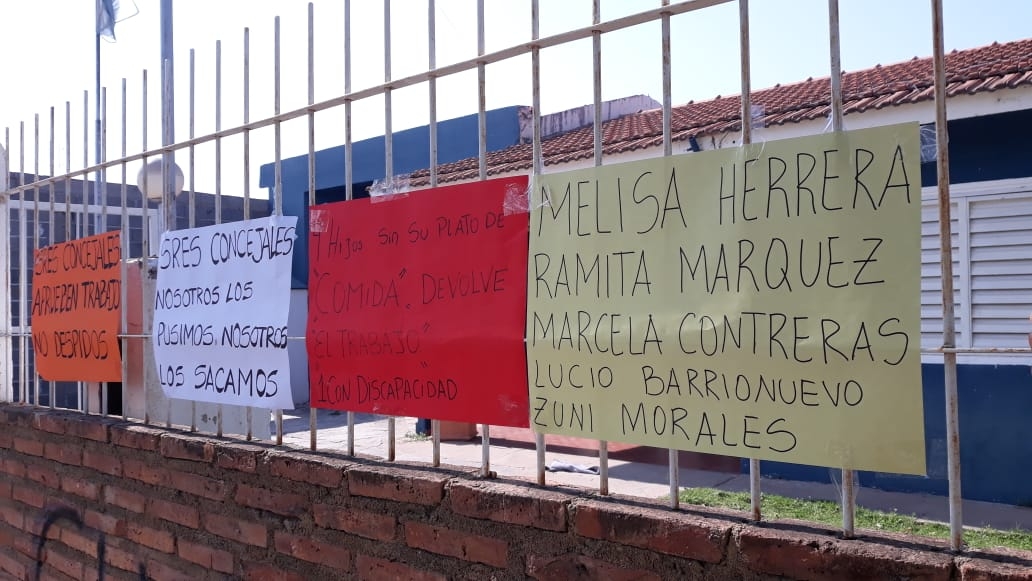 SRES CONCEJALES
APRUEBEN TRABAJO
NO DESPIDOS
SRES CONCEJALES
NOSOTROS LOS
PUSIMOS, NOSOTROS
LOS SACAMOS
HIJOS SIN SU PLATO DE
"COMIDA". DEVOLVE
"EL TRABAJO"
1 CON DISCAPACIDAD
MELISA HERRERA
RAMITA MARQUEZ
MARCELA CONTRERAS
LUCIO BARRIONUEVO
ZUNI MORALES